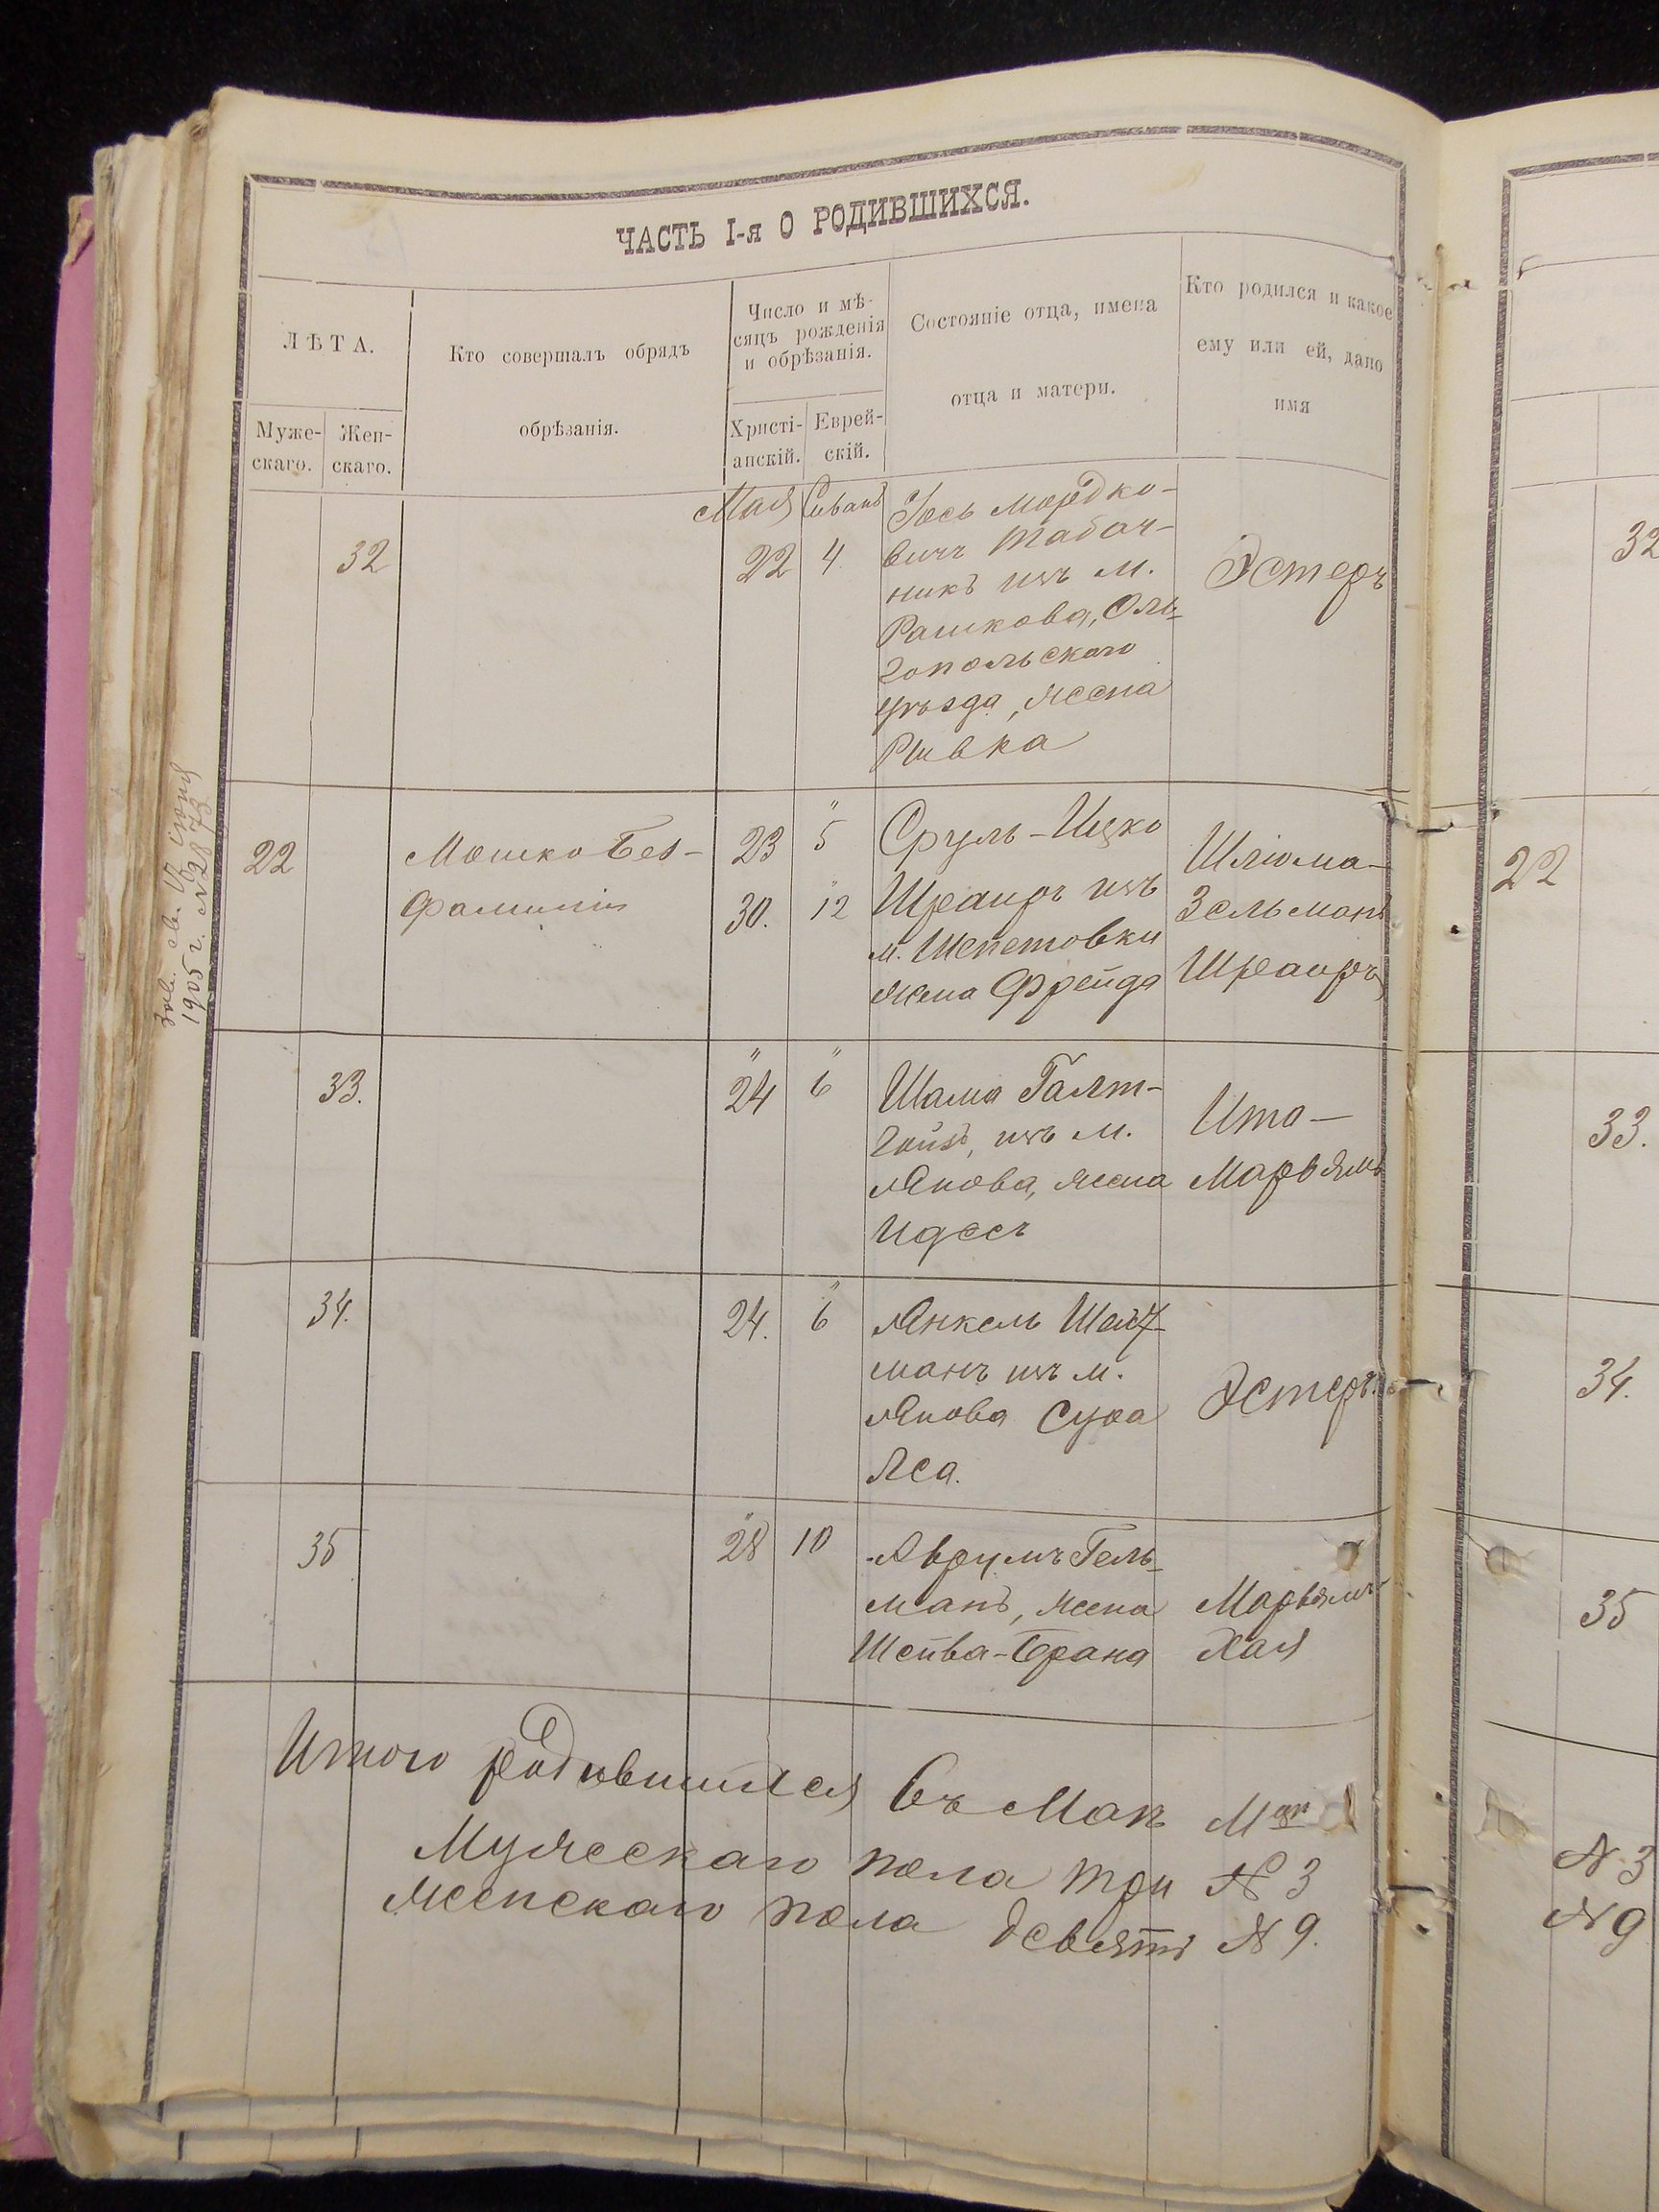 ЧАСТЬ I-я О РОДИВШИХСЯ.
ЛѢТА.
Муже-
скаго.
Жен-
скаго.
Кто совершалъ обрядъ
обрѣзанія.
Число и мѣ-
сяцъ рожденія
и обрѣзанія.
Христі-
анскій.
Еврей-
скій.
Состояніе отца, имена
отца и матери.
Кто родился и какое
ему или ей, дано
имя
32
Мая
22
Сиванъ
4
Іось Мордко-
вичъ Табач-
никъ изъ м.
Рашкова, Оль-
гопольскаго
уѣзда, жена
Ривка
Эстеръ
22
Мошко Без-
фамилія
23
30.
" 5
" 12
Сруль-Ицко
изъ
м. Шепетовки
жена Фрейда
Шлiома-
Зельманъ
33.
" 24
" 6
Шама Галт-
изъ м.
Янова, жена
Идесъ
Ита-
Марьямъ
34.
24.
" 6
Янкель
манъ изъ м.
Янова Сура
Эстеръ
35
" 28
10
Аврумъ Гель-
манъ, жена
Шейва-Брана
Марьямъ
Хая
Итого родившихся въ Маѣ
Мужескаго пола три № 3
Женскаго пола девять № 9.
1905 г. № 2873
32
22
33.
34.
35
№ 3
№ 9